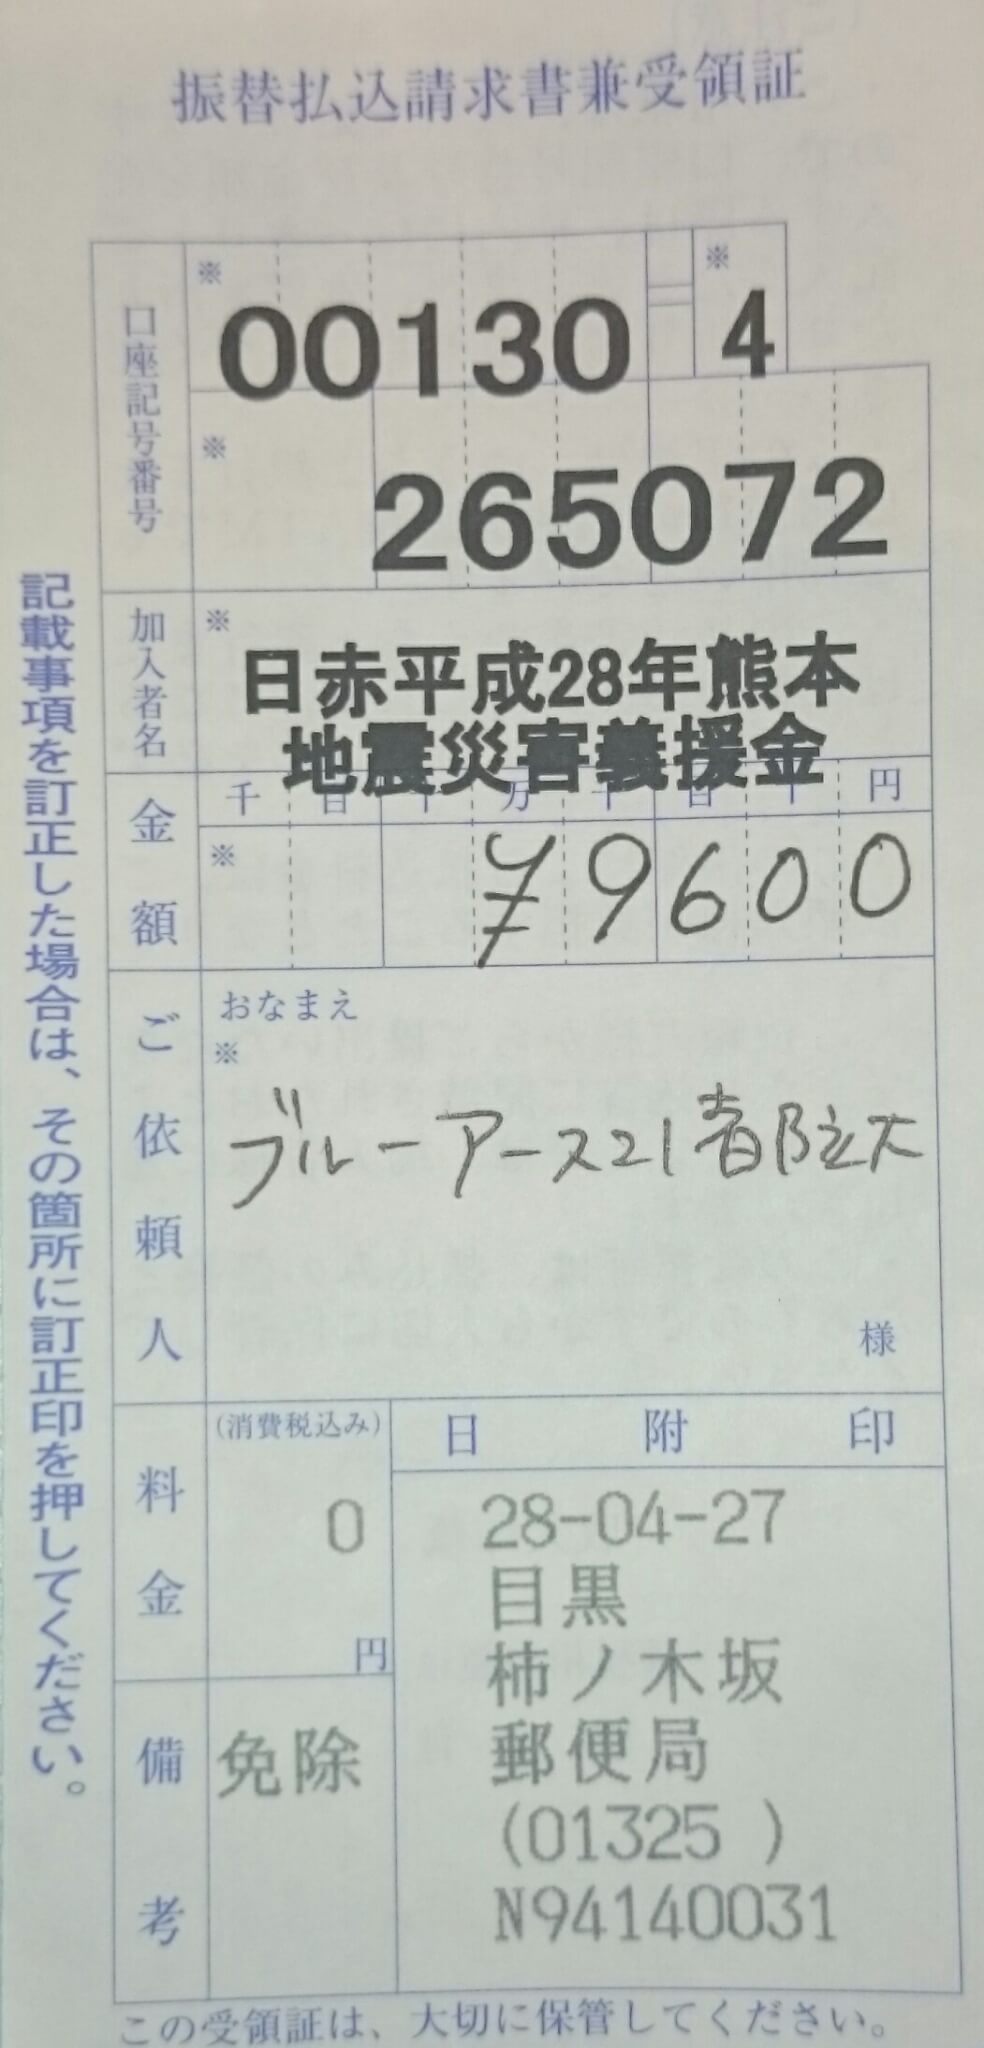 振替払込請求書兼受領証
口座記号番号
※ ※
00130 4
※
265072
加入者名
※
日赤平成28年熊本
地震災害義援金
金額
千 百 十 万 千 百 十 円
※
¥9600
ご依頼人
おなまえ
※
ブルーアース21都立大
様
料金
(消費税込み)
0
円
日附印
28-04-27
目黒
柿ノ木坂
郵便局
(01325 )
N94140031
備考
免除
記載事項を訂正した場合は、その箇所に訂正印を押してください。
この受領証は、大切に保管してください。